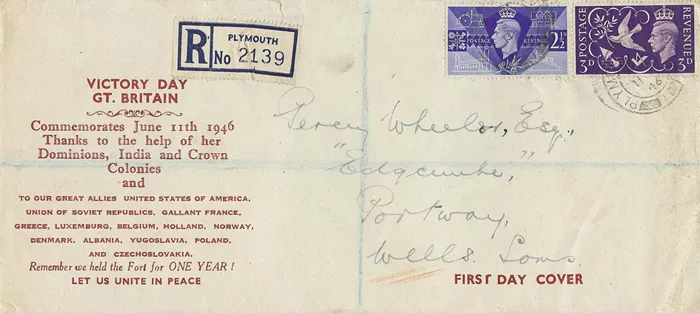 R PLYMOUTH
No 2139
POSTAGE REVENUE
2½
POSTAGE REVENUE
3D 3D
VICTORY DAY
GT. BRITAIN
Commemorates June 11th 1946
Thanks to the help of her
Dominions, India and Crown
Colonies
and
TO OUR GREAT ALLIES UNITED STATES OF AMERICA,
UNION OF SOVIET REPUBLICS, GALLANT FRANCE,
GREECE, LUXEMBURG, BELGIUM, HOLLAND, NORWAY,
DENMARK, ALBANIA, YUGOSLAVIA, POLAND,
AND CZECHOSLOVAKIA.
Remember we held the Fort for ONE YEAR!
LET US UNITE IN PEACE
Percy Wheeler, Esq.,
"Edgcumbe,"
Portway,
Wells. Soms.
FIRST DAY COVER